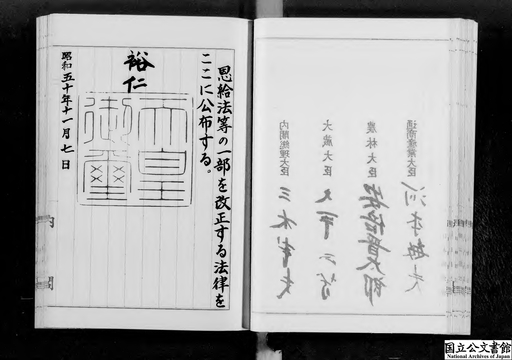 恩給法等の一部を改正する法律を
ここに公布する。
裕仁
天皇
御璽
昭和五十年十一月七日
内閣
通商産業大臣
河本敏夫
農林大臣
安倍晋太郎
大蔵大臣
大平正芳
内閣総理大臣
三木武夫
国立公文書館
National Archives of Japan